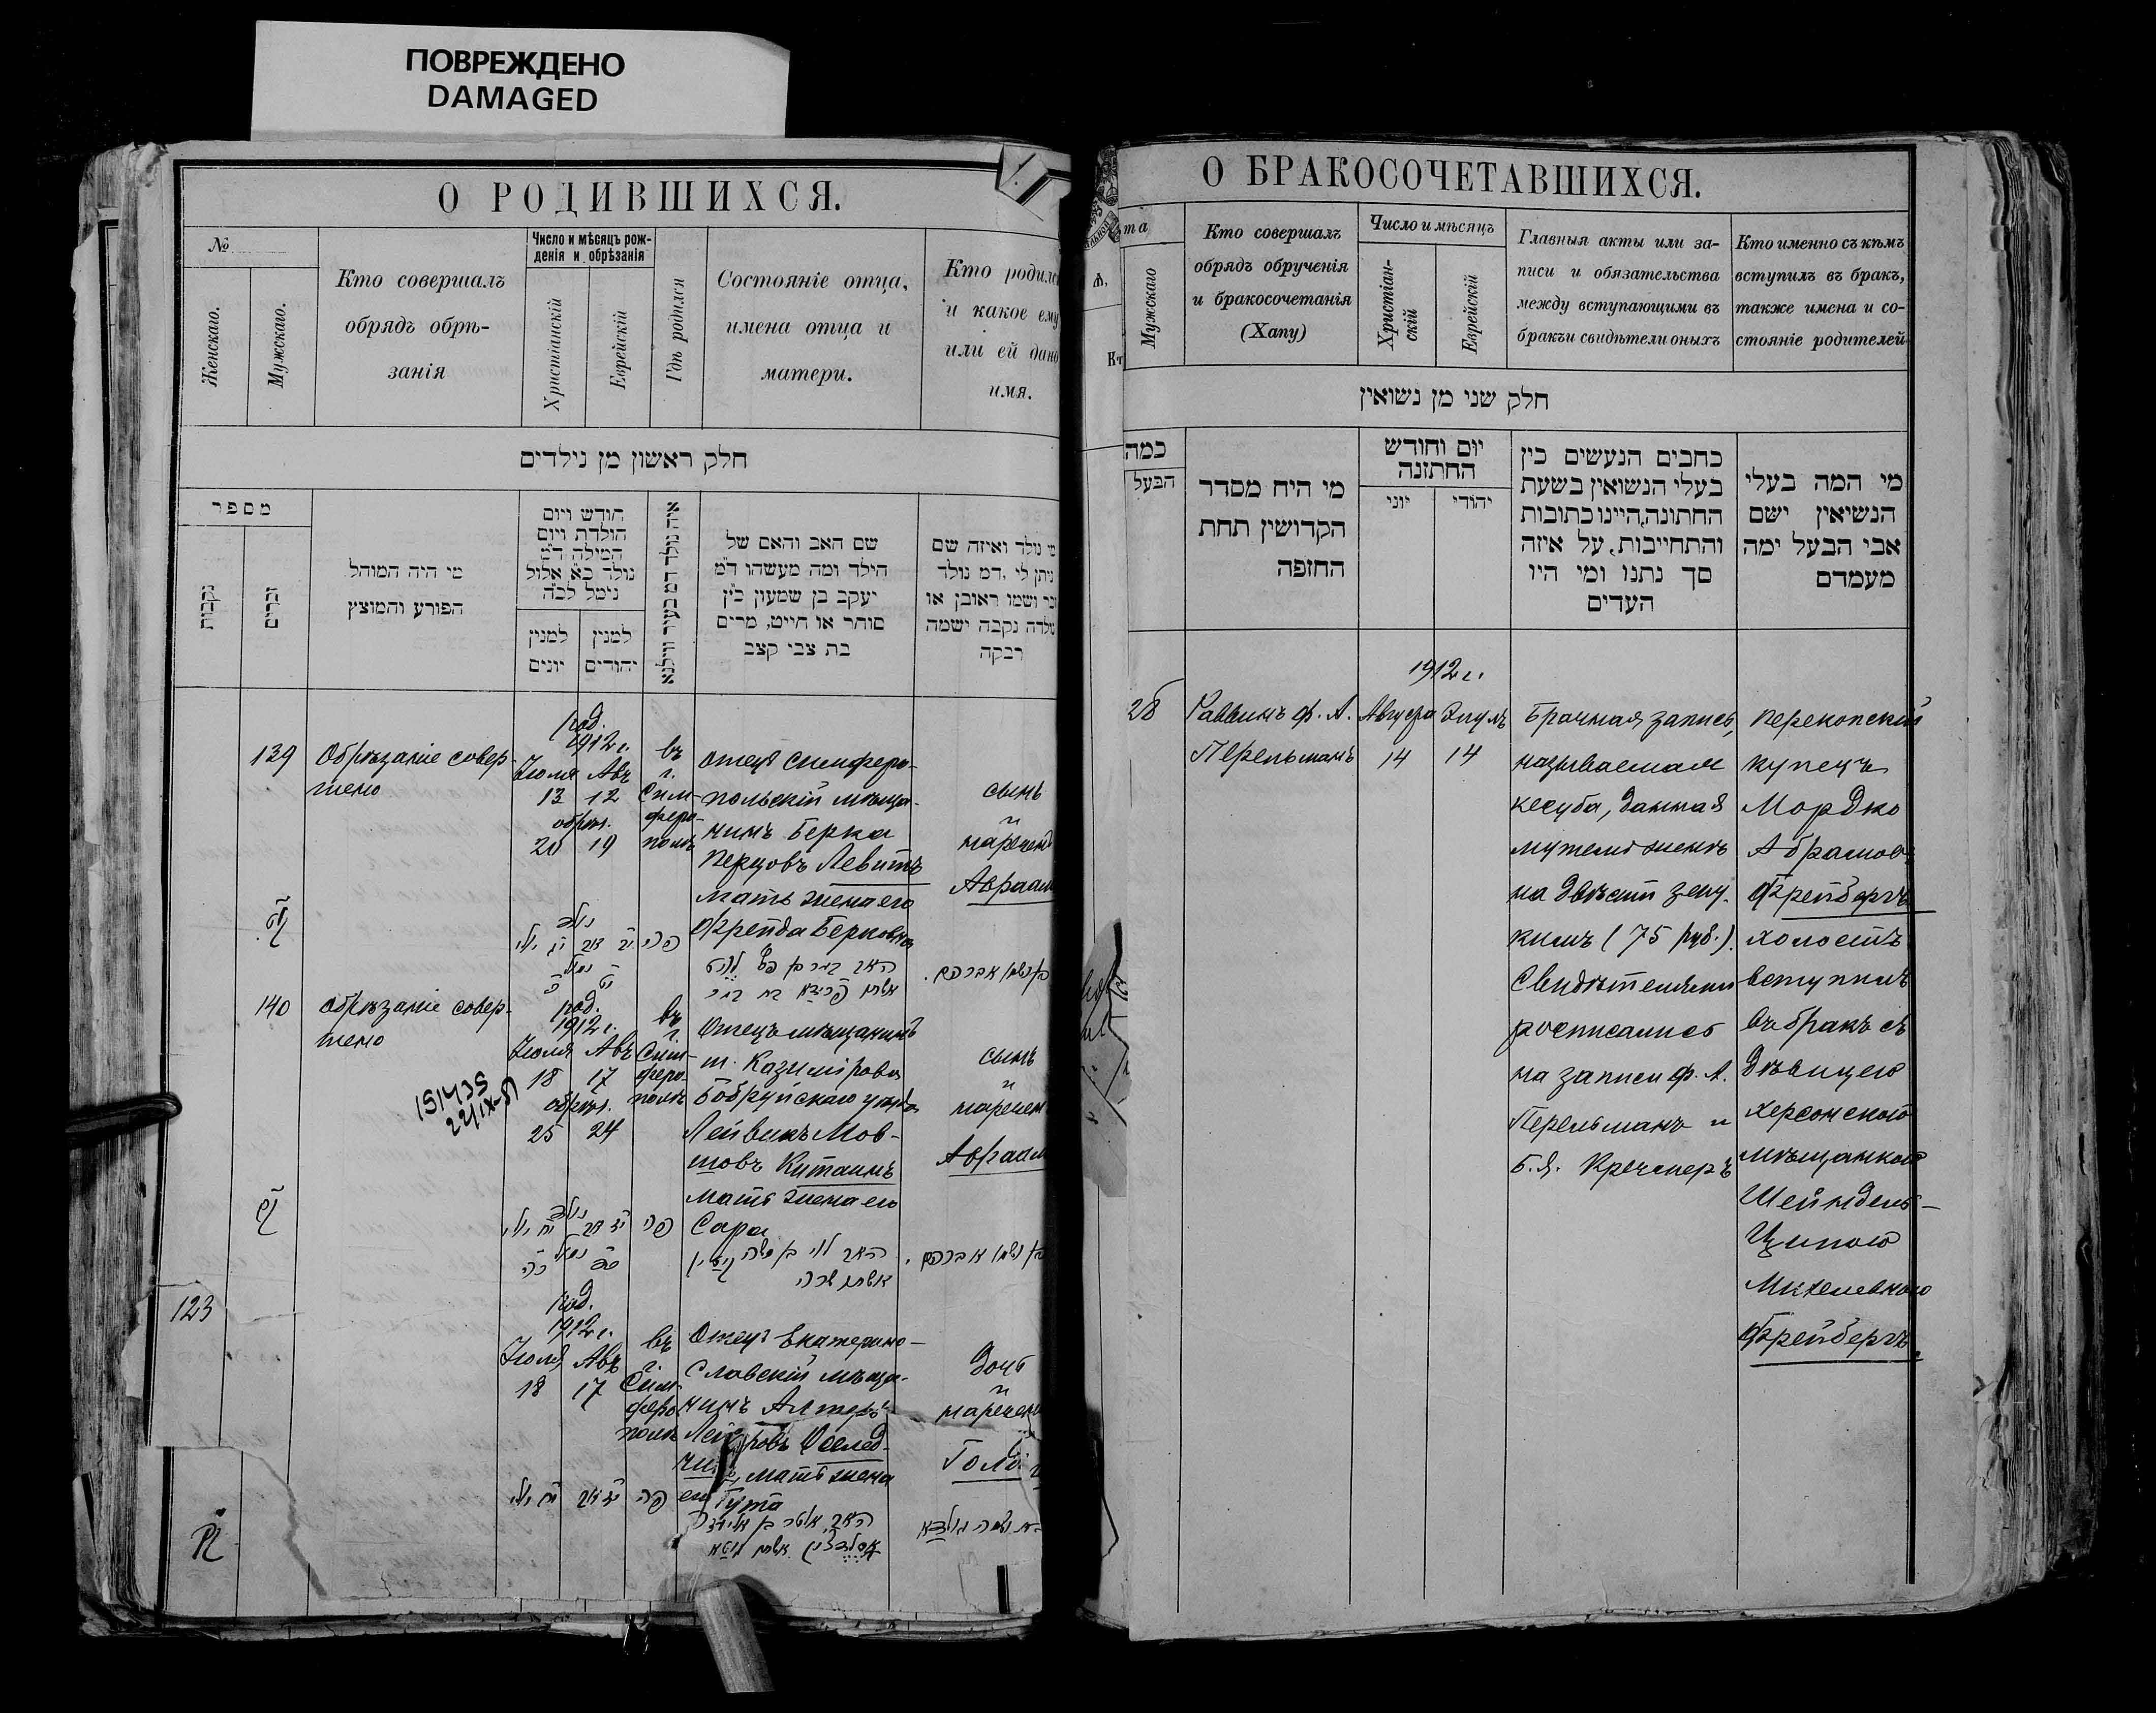 ПОВРЕЖДЕНО
DAMAGED
О РОДИВШИХСЯ.
№
Женскаго.
Мужскаго.
Кто совершалъ
обрядъ обрѣ-
занія
Число и мѣсяцъ рож-
денія и обрѣзанія
Христіанскій
Еврейскій
Гдѣ родился
Состояніе отца,
имена отца и
матери.
Кто родился
и какое ему
или ей дано
имя.
חלק ראשון מן נילדים
מספר
נקבות
זכרים
מי היה המוהל
הפורע והמוצץ
חודש ויום
הולדת ויום
המילה ד״מ
נולד כ״א אלול
נימל לכ״ה
למנין
יונים
למנין
יהודים
איה נולד דמ בעיר ווילנא
שם האב והאם של
הילד ומה מעשהו ד״מ
יעקב בן שמעון כ״ץ
סוחר או חייט, מרים
בת צבי קצב
מי נולד ואיזה שם
ניתן לי .דמ נולד
זכר ושמו ראובן או
נולדה נקבה ישמה
רבקה
139
Обрѣзаніе совер-
шено
род.
1912 г.
Іюля Авъ
13 12
обрѣз.
20 19
въ
г.
Сим-
феро-
полѣ
отецъ симферо-
польскій мѣща-
нинъ Берка
Перцовъ Левитъ
мать жена его
Фрейда Берковна
сынъ
и
нареченъ
Авраам
140
Обрѣзаніе совер-
шено
род.
1912 г.
Іюля Авъ
18 17
обрѣз.
25 24
въ
г.
Сим-
феро-
полѣ
Отецъ мѣщанинъ
м. Казимірова
Бобруйскаго уѣзда
Лейвикъ Мов-
шовъ Китаинъ
мать жена его
Сара
сынъ
и
нареченъ
Авраам
151435
22/IX-51
123
род.
1912 г.
Іюля Авъ
18 17
въ
г.
Сим-
феро-
полѣ
Отецъ Екатерино-
славскій мѣща-
нинъ Алтеръ
мать жена
его Гута
дочь
и
наречена
О БРАКОСОЧЕТАВШИХСЯ.
Мужскаго
Кто совершалъ
обрядъ обрученія
и бракосочетанія
(Хапу)
Число и мѣсяцъ
Христіан-
скій
Еврейскій
Главныя акты или за-
писи и обязательства
между вступающими въ
бракъи свидѣтели оныхъ
Кто именно съ кѣмъ
вступилъ въ бракъ,
также имена и со-
стояніе родителей
חלק שני מן נשואין
כמה
הבעל
מי היח מסדר
הקדושין תחת
החופה
יום וחודש
החתונה
יוני
יהודי
כתבים הנעשים בין
בעלי הנשואין בשעת
החתונה,היינו כתובות
והתחייבות, על איזה
סך נתנו ומי היו
העדים
מי המה בעלי
הנשיאין ישם
אבי הבעל ימה
מעמדם
1912 г.
28
Раввинъ Ф. А.
Перельманъ
Августа
14
Элулъ
14
Брачная запись,
называемая
кесуба, данная
мужемъ женѣ
на двѣсти зеку-
кимъ (75 руб.).
Свидѣтелями
росписались
на записи Ф. А.
Перельманъ и
Б.Я. Кречмеръ
Перекопскій
купецъ
Мордко
Абрамовъ
Фрейбергъ
холостъ
вступилъ
въ бракъ съ
дѣвицею
херсонскою
мѣщанкою
Шейндель-
Ципою
Михелевною
Фрейбергъ.